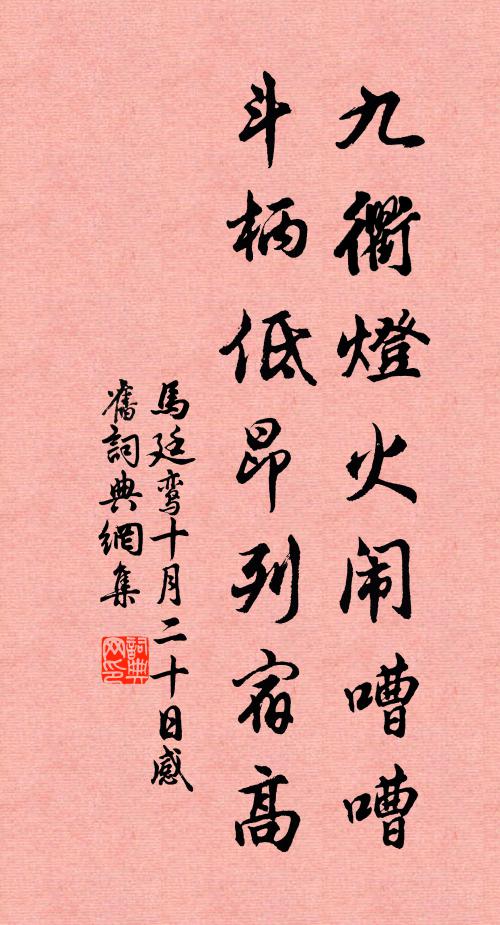 九衢燈火闹嘈嘈
斗柄低昂列宿高
馬廷鸾十月二十日感
舊詞典網集
詞典网印